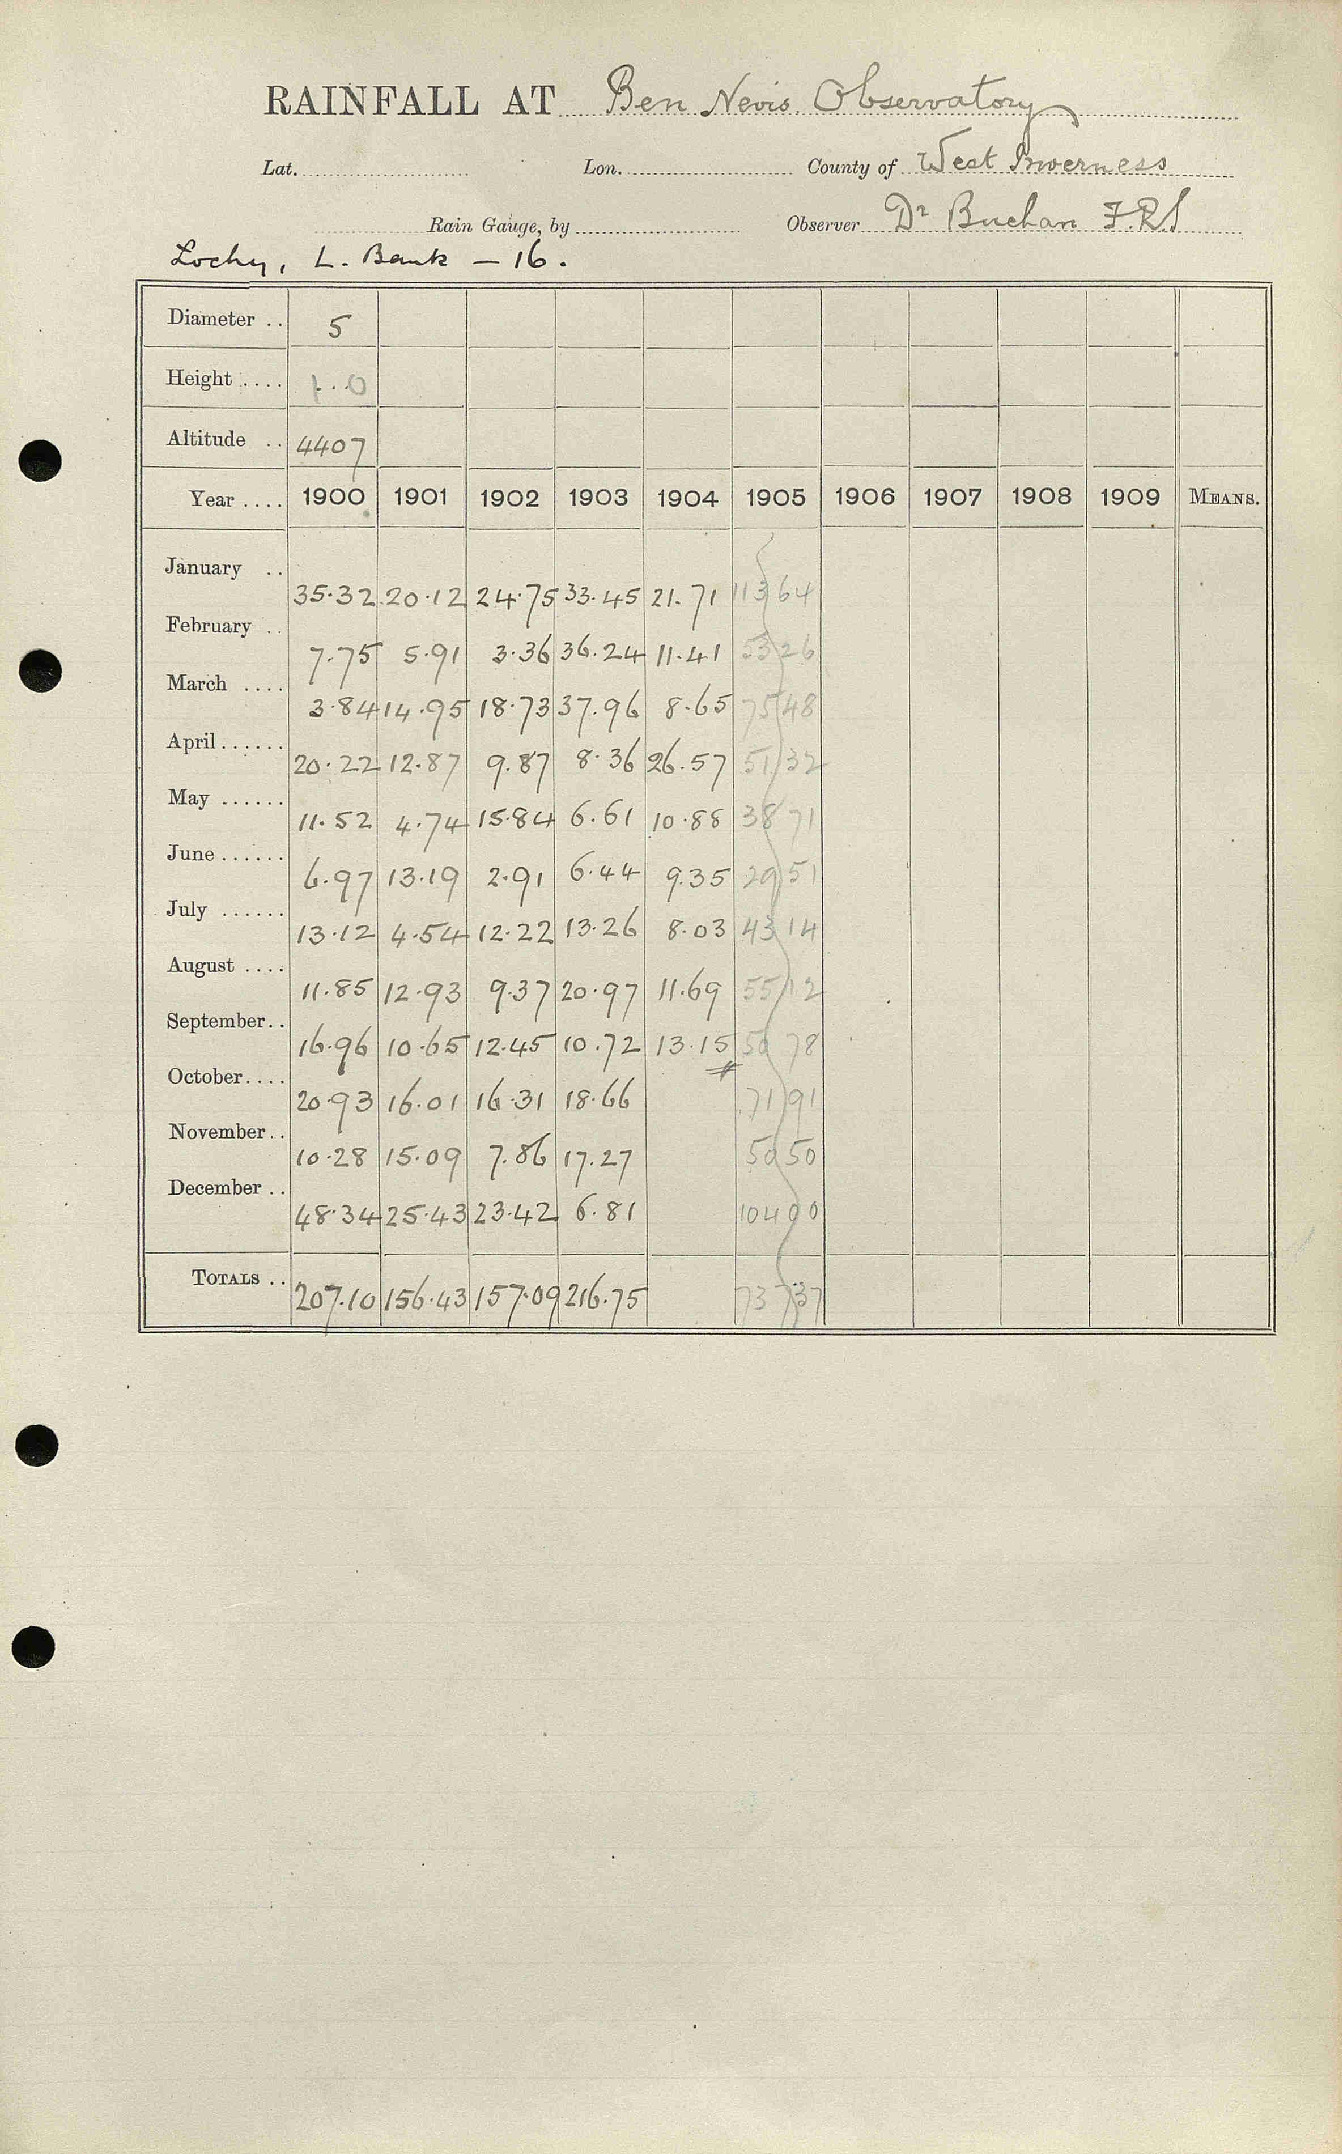 RAINFALL AT Ben Nevis Observatory
Lat. Lon. County of West Inverness
Rain Gauge, by Observer Dr Buchan F.R.S
Lochy, L. Bank – 16.
Diameter .. 5
Height .... 1.0
Altitude .. 4407
Year .... 1900 1901 1902 1903 1904 1905 1906 1907 1908 1909 MEANS.
January .. 35.32 20.12 24.75 33.45 21.71 113 64
February .. 7.75 5.91 3.36 36.24 11.41 53 26
March .... 3.84 14.95 18.73 37.96 8.65 75 48
April...... 20.22 12.87 9.87 8.36 26.57 51 32
May ...... 11.52 4.74 15.84 6.61 10.88 38 71
June...... 6.97 13.19 2.91 6.44 9.35 29 51
July ...... 13.12 4.54 12.22 13.26 8.03 43 14
August .... 11.85 12.93 9.37 20.97 11.69 55 12
September.. 16.96 10.65 12.45 10.72 13.15 50 78
October.... 20.93 16.01 16.31 18.66 71 91
November.. 10.28 15.09 7.86 17.27 50 50
December .. 48.34 25.43 23.42 6.81 104 00
TOTALS .. 207.10 156.43 157.09 216.75 737 37